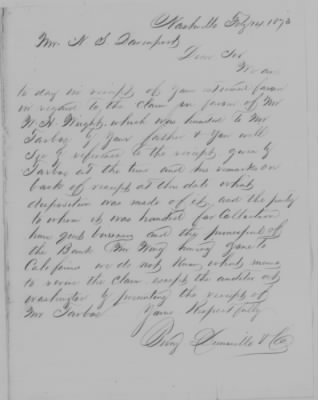 Nashville Feby 14 1873
Mr. N. S. Davenport
Dear Sir
We are
to day in receipt of your esteemed favor
in regard to the claim in favor of Mr
W. H. Wright, which was handed to Mr
by your father & you will
See by reference to the receipt given by
at the time and his remarks on
back of receipt at this date what
disposition was made of it, and the party
to whom it was handed for Collection
and the principal of
the Bank Mr King having gone to
California we do not know what means
to the Claim except the auditor at
Washington by presenting the receipt of
Mr
Yours Respectfully
& Co